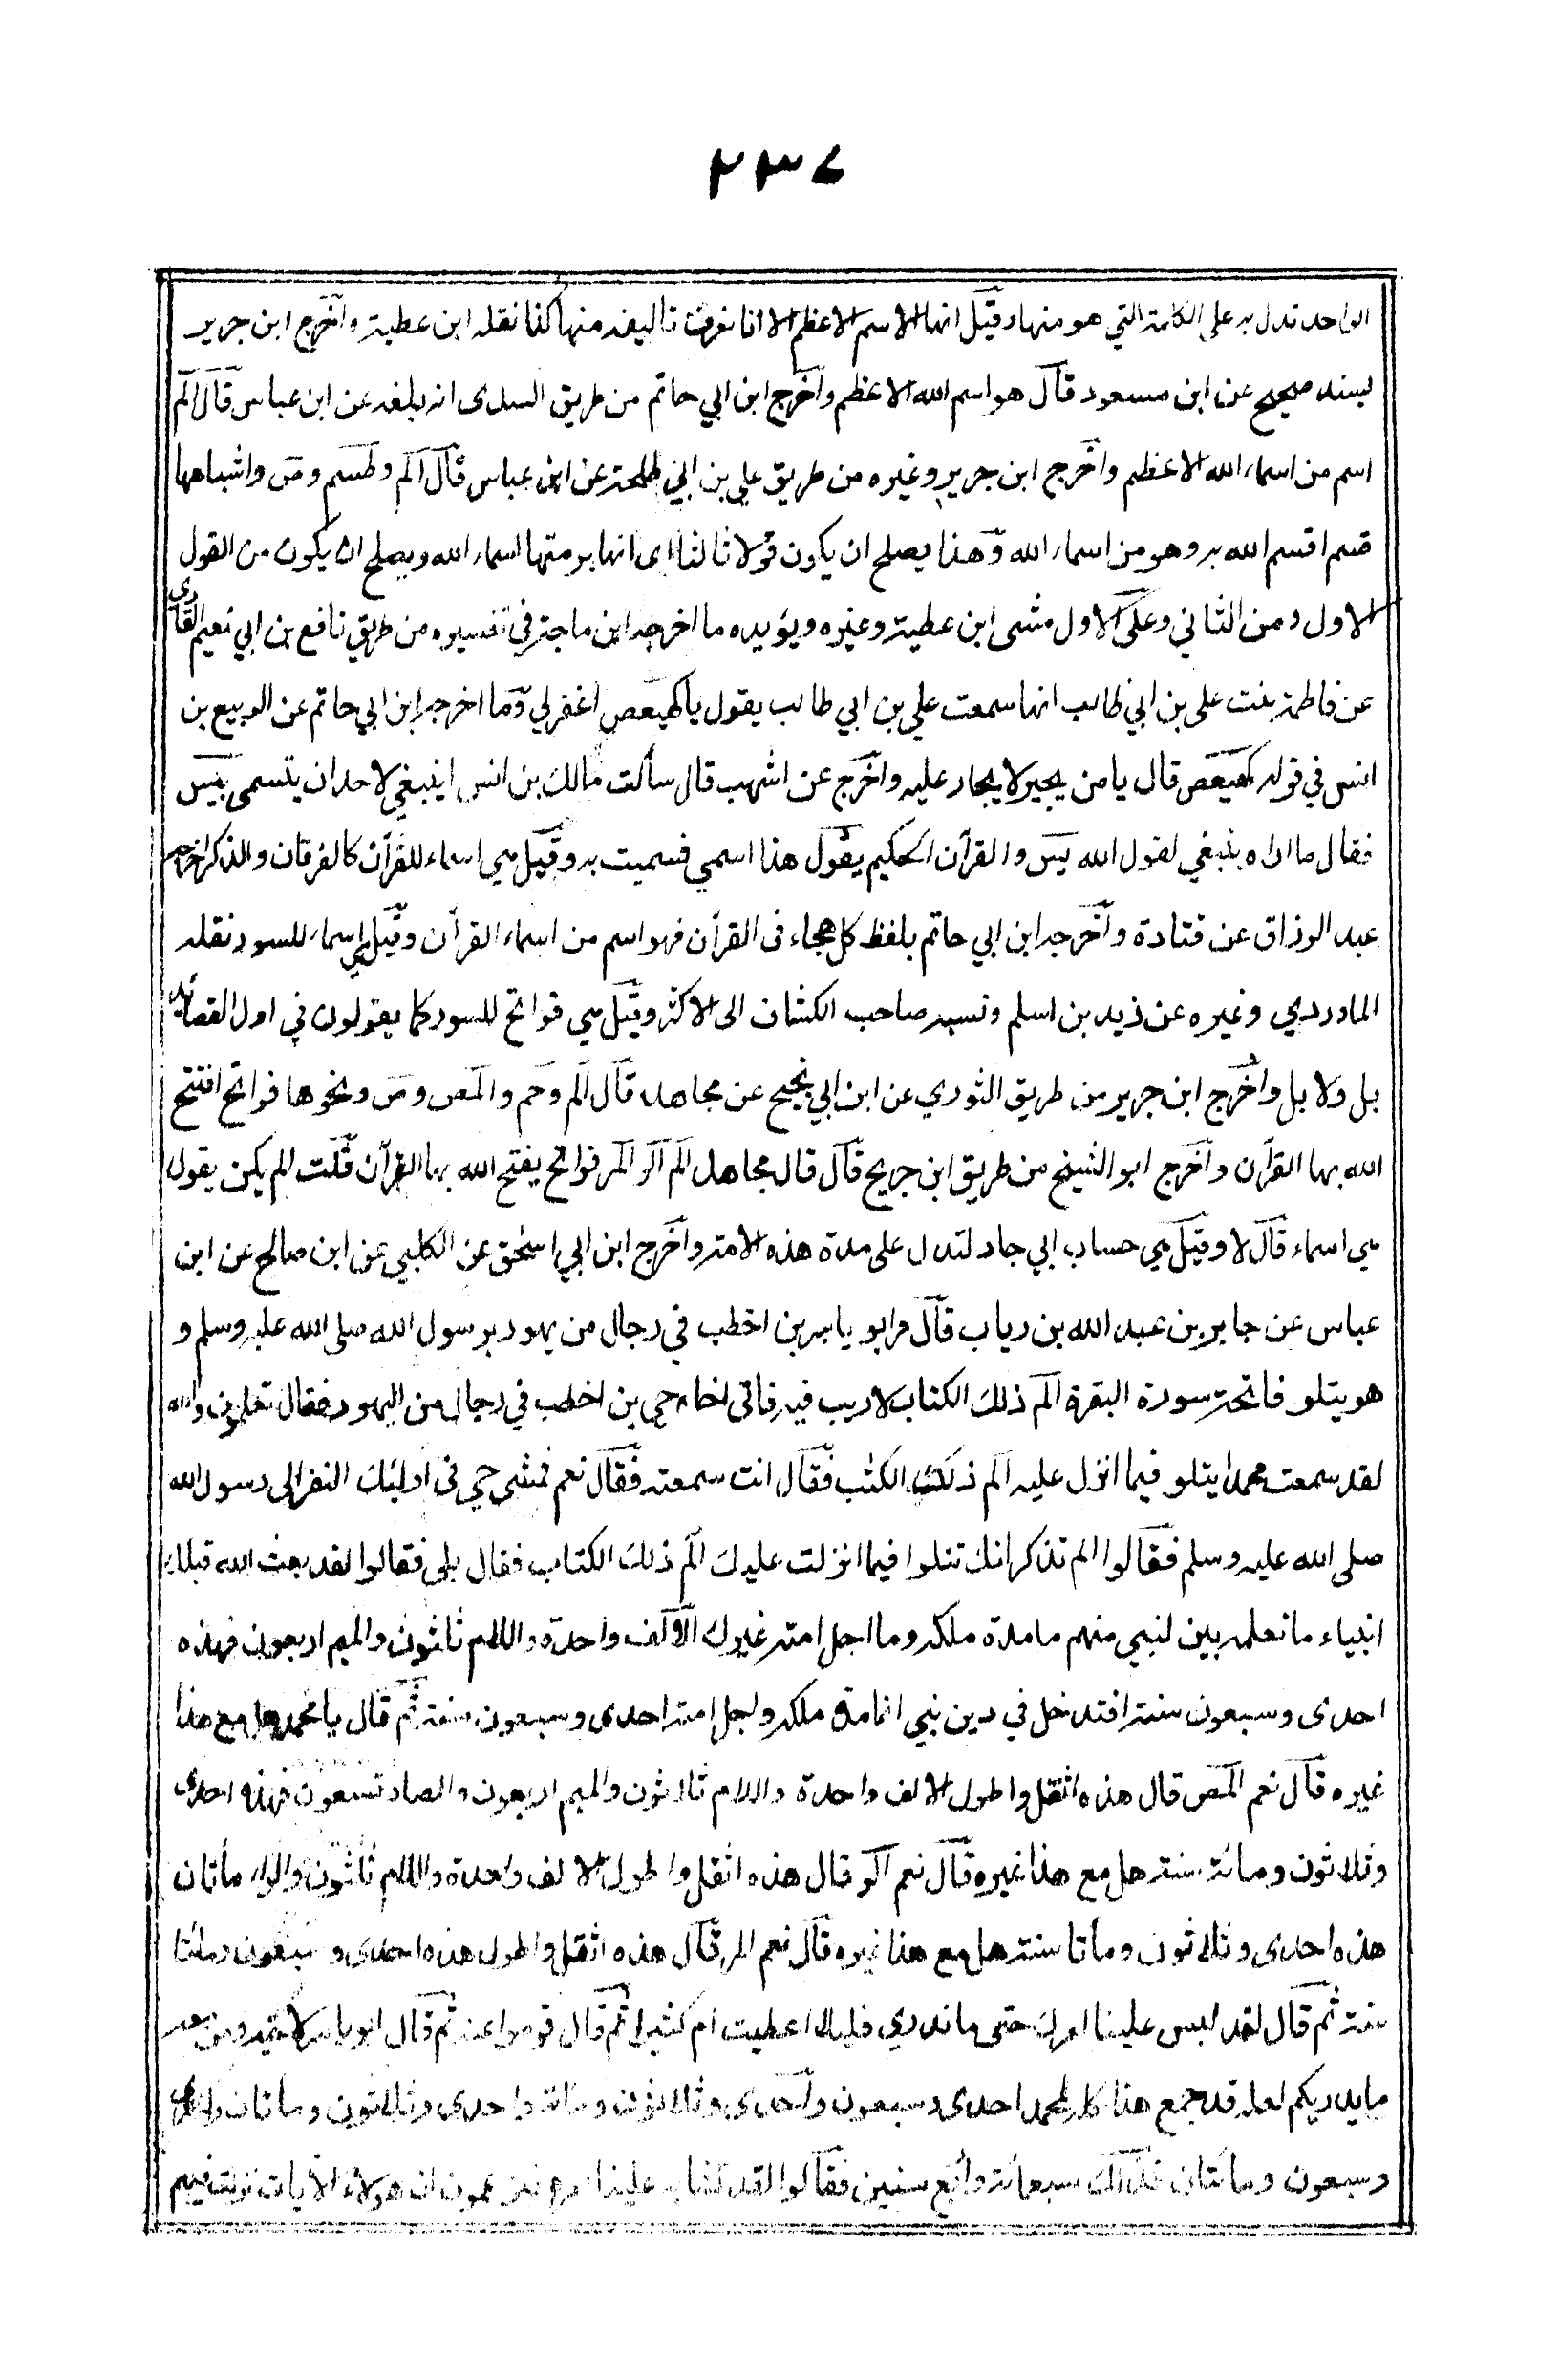 ٢٣٧
الواحد تدل به على الكلمة التي هو منها وقيل انها الاسم الاعظم الا انا نعرف تاليفه منها كذا نقله ابن عطية وآخرج ابن جرير
بسند صحيح عن ابن مسعود قآل هو اسم الله الاعظم وآخرج ابن ابي حاتم من طريق السدى انه بلغه عن ابن عباس قآل الٓم
اسم من اسماء الله الاعظم وآخرج ابن جرير وغيره من طريق علي بن ابي طلحة عن ابن عباس قآل الٓم وطسٓم وصٓ واشباهها
قسم اقسم الله به وهو من اسماء الله وٓهذا يصلح ان يكون قولا ثالثا اى انها برمتها اسماء الله ويصلح ان يكون من القول
الاول ومن الثاني وعلى الاول مشى ابن عطية وغيره ويؤيده ما اخرجه ابن ماجة في تفسيره من طريق نافع بن ابي نعيم القارى
عن فاطمة بنت على بن ابي طالب انها سمعت علي بن ابي طالب يقول يا كهيعٓصٓ اغفرلي وٓما اخرجه ابن ابي حاتم عن الربيع بن
انس في قوله كهيعٓصٓ قال يا من يجير لا يجار عليه وآخرج عن اشهب قال سألت مالك بن انس اينبغي لاحد ان يتسمى بيٓسٓ
فقال ما اراه ينبغي لقول الله يٓسٓ والقرآن الحكيم يقول هذا اسمي فسميت به وقيل هي اسماء للقرآن كالفرقان والذكر اخرجه
عبد الرزاق عن قتادة وآخرجه ابن ابي حاتم بلفظ كل هجاء فى القرآن فهو اسم من اسماء القرآن وقيل هي اسماء للسور نقله
الماوردي وغيره عن زيد بن اسلم ونسبه صاحب الكشاف الى الاكثر وقيل هي فواتح للسور كما يقولون في اول القصائد
بل ولا بل وآخرج ابن جرير من طريق الثوري عن ابن ابي نجيح عن مجاهد قآل الٓم وحٓم والٓمٓصٓ وصٓ ونحوها فواتح افتتح
الله بها القرآن وآخرج ابو الشيخ من طريق ابن جريج قآل قال مجاهد الٓم الٓر الٓمٓر فواتح يفتتح الله بها القرآن قلت الم يكن يقول
هي اسماء قآل لا وقيل هي حساب ابي جاد لتدل على مدة هذه الامة وآخرج ابن ابي اسحٰق عن الكلبي عن ابن صالح عن ابن
عباس عن جابر بن عبد الله بن رياب قآل مر ابو ياسر بن اخطب في رجال من يهود برسول الله صلى الله عليه وسلم و
هو يتلو فاتحة سورة البقرة الٓم ذلك الكتاب لا ريب فيه فاتى اخاه حيي بن اخطب في رجال من اليهود فقال تعلمون والله
لقد سمعت محمدا يتلو فيما انزل عليه الٓم ذلك الكتٰب فقال انت سمعته فقآل نعم فمشى حيي فى اولئك النفر الى رسول الله
صلى الله عليه وسلم فقآلوا الم تذكر انك تتلوا فيما انزلت عليك الٓم ذلك الكتاب فقال بلى فقالوا لقد بعث الله قبلك
انبياء ما نعلمه بين لنبي منهم ما مدة ملكه وما اجل امته غيرك الآلف واحدة واللام ثلثون والميم اربعون فهذه
احدى وسبعون سنة افتدخل في دين نبي انما مدة ملكه واجل امته احدى وسبعون سنة ثم قال يا محمد هل مع هذا
غيره قآل نعم الٓمٓصٓ قال هذه اثقل واطول الالف واحدة واللام ثلاثون والميم اربعون والصاد تسعون فهذه احدى
وثلاثون ومائة سنة هل مع هذا غيره قآل نعم الٓر قال هذه اثقل واطول الالف واحدة واللام ثلثون والراء مأتان
هذه احدى وثلاثون ومأتا سنة هل مع هذا غيره قآل نعم المر قآل هذه اثقل واطول هذه احدى وسبعون ومائتا
سنة ثم قال لقد لبس علينا امرك حتى ما ندري قليلا اعطيت ام كثيرا ثم قال قوموا عنه ثم قال ابو ياسر لاخيه ومن معه
ما يدريكم لعله قد جمع هذا كله لمحمد احدى وسبعون وآحدى وثلاثون ومائة واحدى وثلاثون ومأتان واحدى
وسبعون ومائتان فذلك سبعمائة وأربع سنين فقآلوا لقد تشابه علينا امره فيزعمون ان هؤلاء الآيات نزلت فيهم